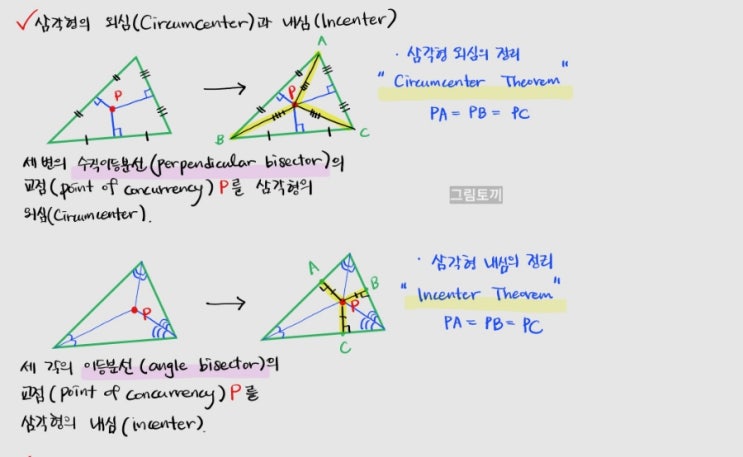 ✓삼각형의 외심(Circumcenter)과 내심(Incenter)
P
A
P
B
C
· 삼각형 외심의 정리
"Circumcenter Theorem"
PA = PB = PC
세 변의 수직이등분선(perpendicular bisector)의
교점(point of concurrency) P를 삼각형의
외심(Circumcenter).
그림토끼
P
A
B
P
C
· 삼각형 내심의 정리
"Incenter Theorem"
PA = PB = PC
세 각의 이등분선(angle bisector)의
교점(point of concurrency) P를
삼각형의 내심(incenter).